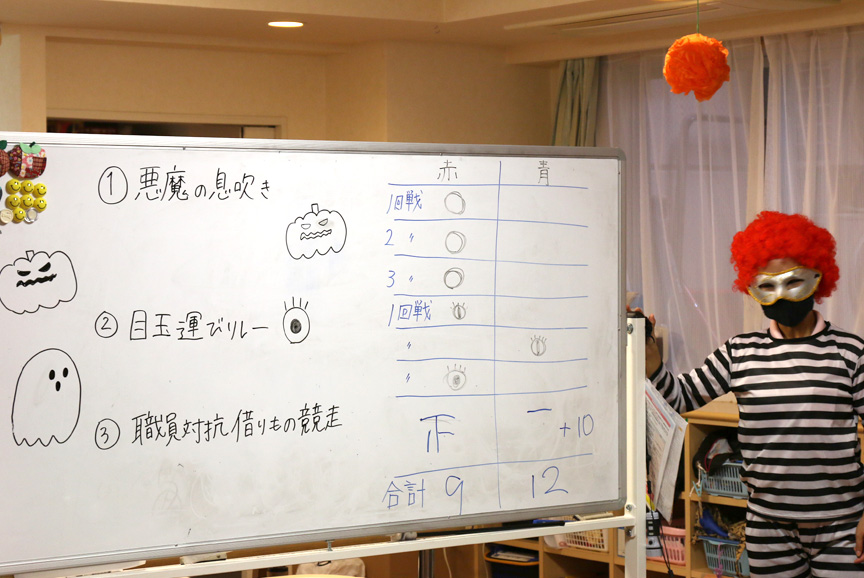 ① 悪魔の息吹き
② 目玉運びリレー
③ 職員対抗借りもの競走
赤 青
1回戦 ○
2 〃 ○
3 〃 ○
1回戦
〃
〃
正 一 +10
合計 9 12